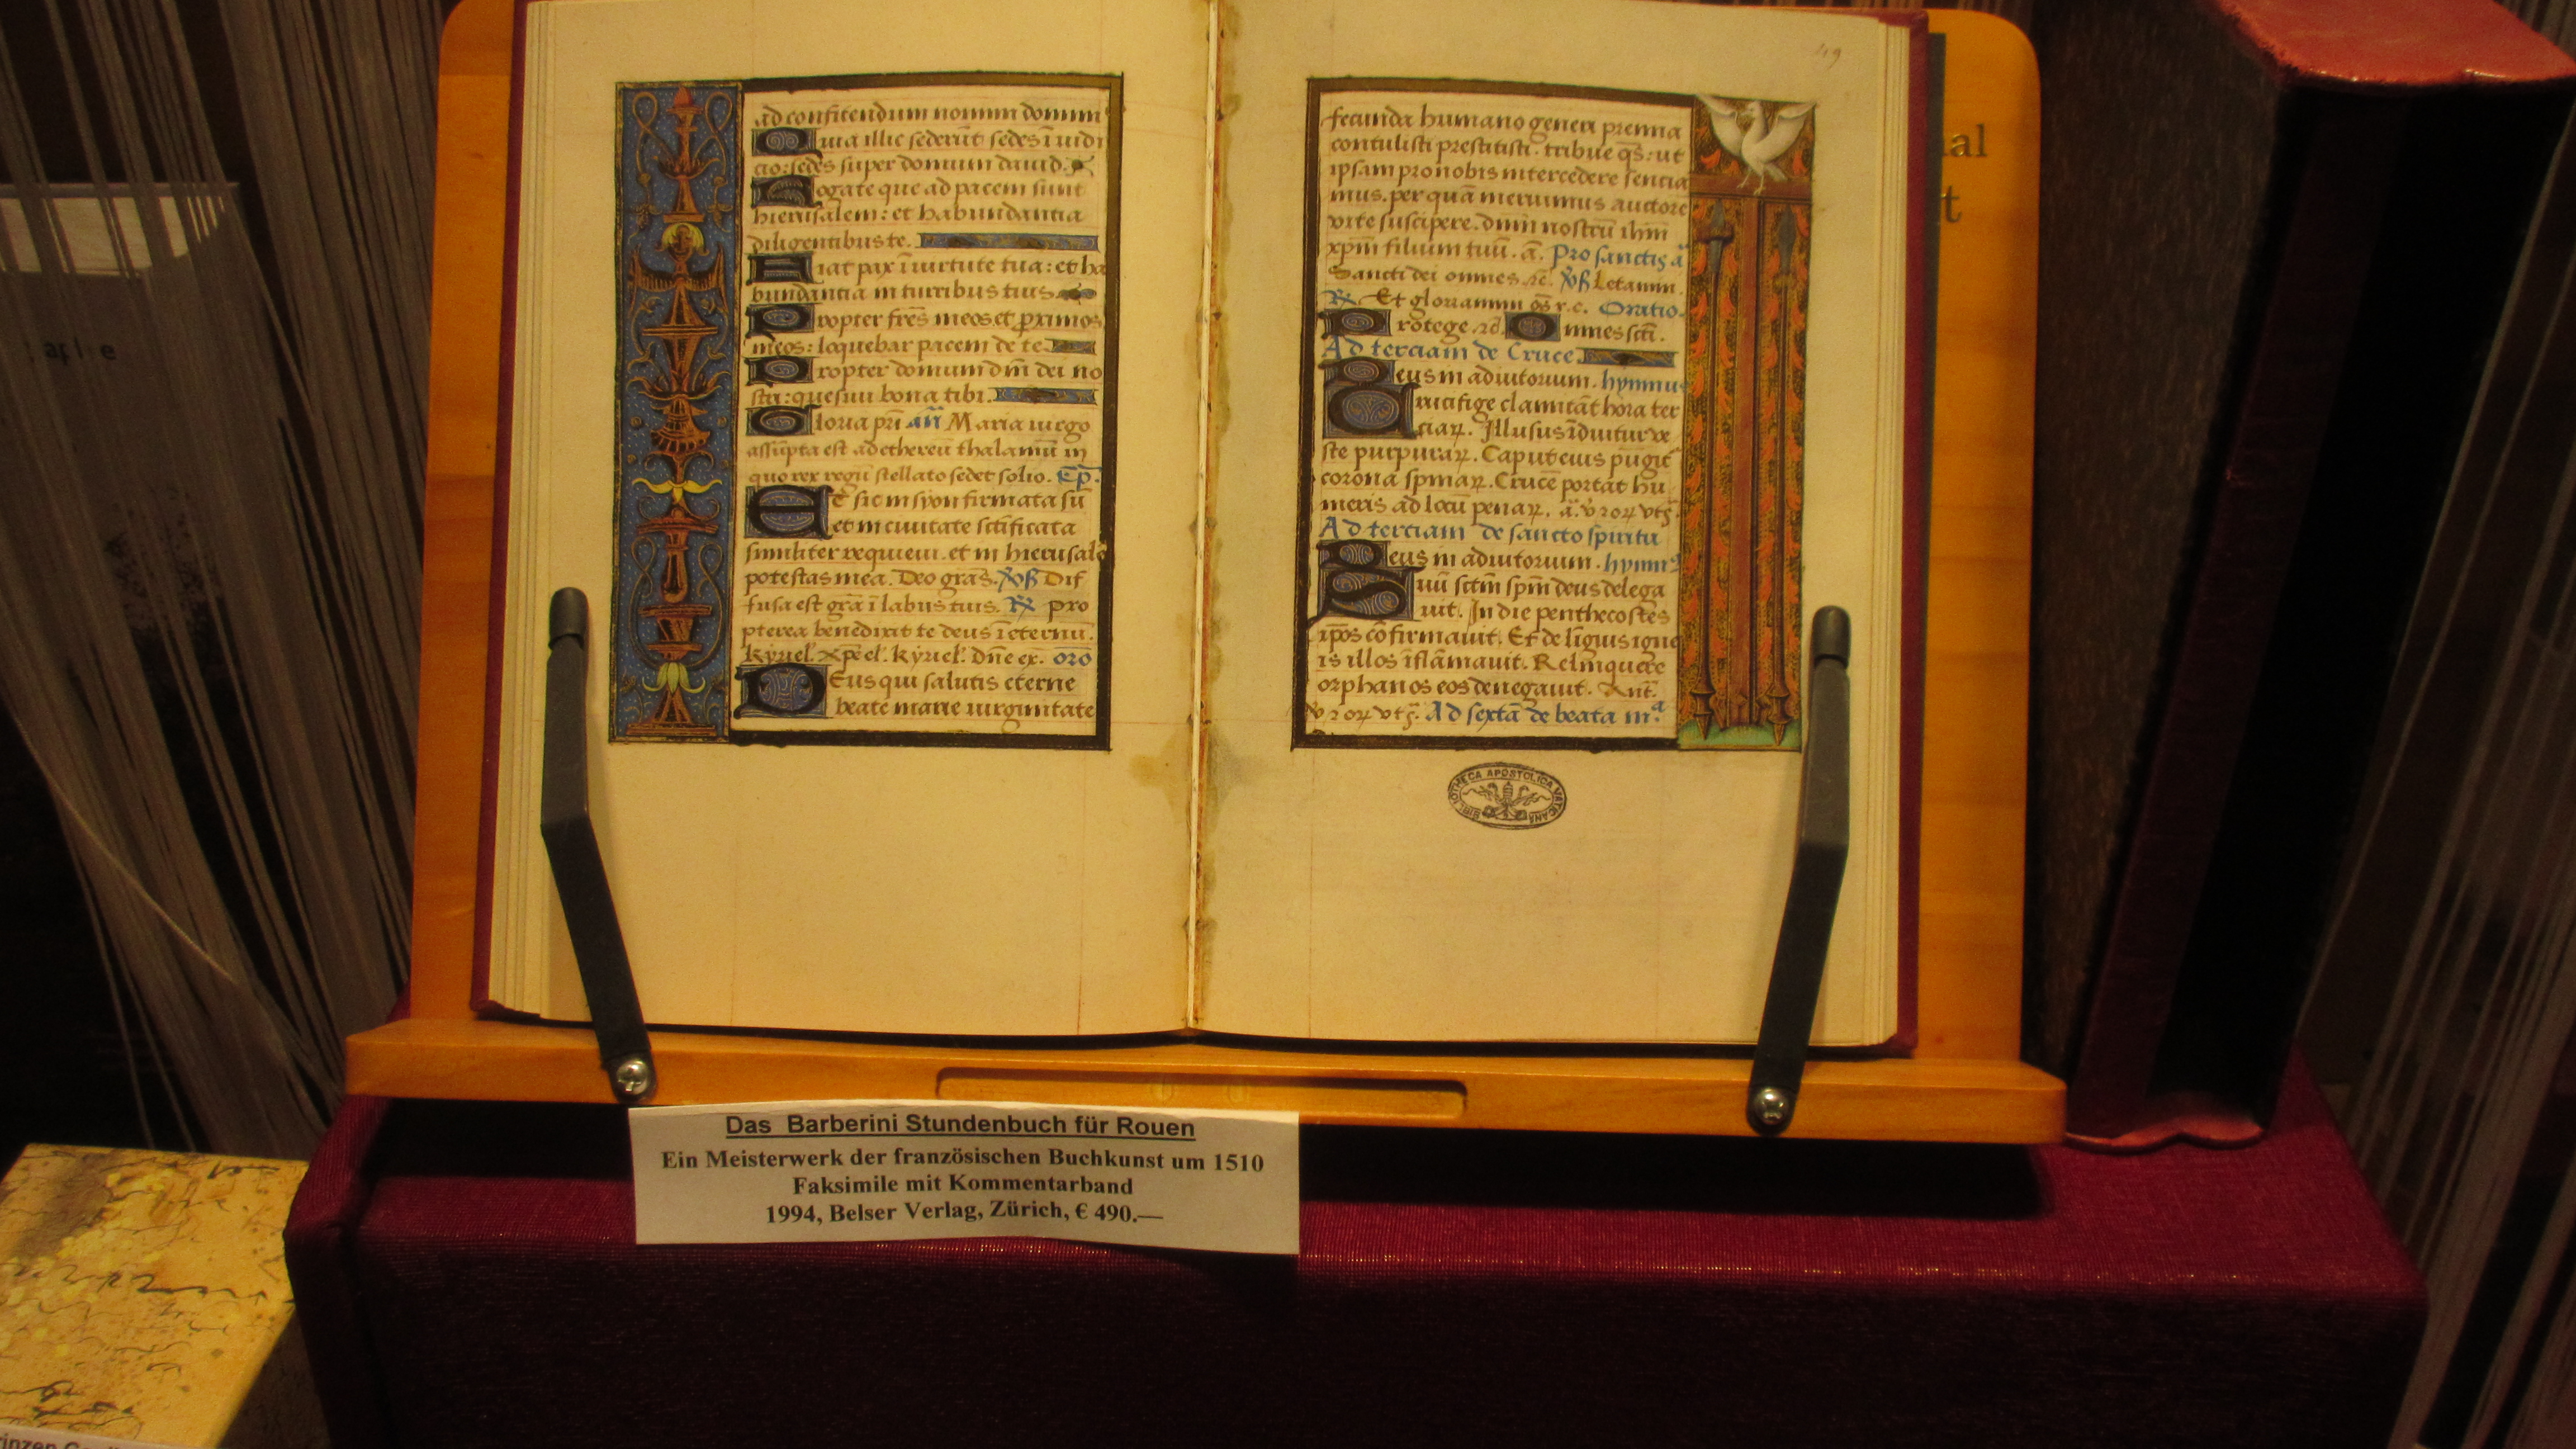 ad confitendum nomini domini
Quia illic sederũt sedes ĩ iudi
cio: sedes super domum dauid.
Rogate que ad pacem sunt
hierusalem: et habundantia
diligentibus te.
Fiat pax ĩ uirtute tua: et ha
bundantia in turribus tuis
Propter fr̃es meos et p̱ximos
meos: loquebar pacem de te
Propter domum dñi dei no
stri: quesiui bona tibi.
Gloria pr̃i añ Maria uirgo
assũpta est ad ethereũ thalamũ in
quo rex regũ stellato sedet solio. Cp̃.
Et sic in syon firmata sũ
et in ciuitate sctificata
similiter requieui. et in hierusalẽ
potestas mea. Deo gras̃. Dif
fusa est grã ĩ labiis tuis. pro
pterea benedixit te deus ĩ eternũ.
kyriel. xp̃el. kyriel. Dñe ex. orõ
DEus qui salutis eterne
beate marie uirginitate
49
fecunda humano generi premia
contulisti prestitisti. tribue qs̃: ut
ipsam pro nobis intercedere sencia
mus. per quã meruimus auctorẽ
vite suscipere. dñm nostrũ ihm̃
xpm̃ filium tuũ. a. Pro sanctis ã
Sancti dei omnes Letamini
Et gloriamini Oratio.
Protege Omnes scti.
Ad terciam de Cruce
Deus in adiutorium. hymnus
Crucifige clamitãt hora ter
ciaꝝ. Illusus ĩduitur ve
ste purpuraꝝ. Caput eius pũgit
corona spinaꝝ. Crucẽ portat hu
meris ad locũ penaꝝ.
Ad terciam de sancto spiritu
Deus in adiutorium. hymnꝰ
Suũ sctm̃ spm̃ deus delega
uit. In die penthecostes
ap̃os cõfirmauit. Et de linguis igne
is illos ĩflãmauit. Relinquere
orphanos eos denegauit. Ant.
Ad sextã de beata mª
BIBLIOTHECA APOSTOLICA VATICANA
Das Barberini Stundenbuch für Rouen
Ein Meisterwerk der französischen Buchkunst um 1510
Faksimile mit Kommentarband
1994, Belser Verlag, Zürich, € 490.—